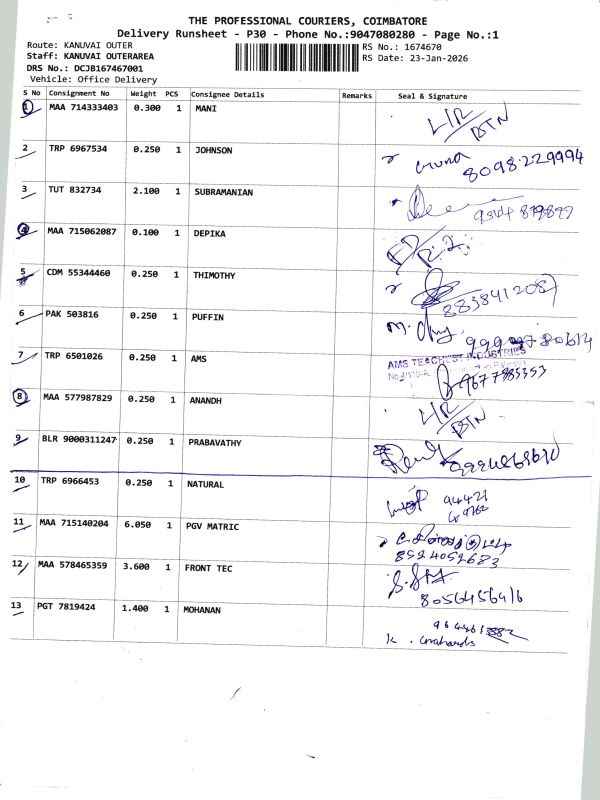 THE PROFESSIONAL COURIERS, COIMBATORE
Delivery Runsheet - P30 - Phone No.:9047080280 - Page No.:1
Route: KANUVAI OUTER
RS No.: 1674670
Staff: KANUVAI OUTERAREA
RS Date: 23-Jan-2026
DRS No.: DCJB167467001
Vehicle: Office Delivery
S No Consignment No Weight PCS Consignee Details Remarks Seal & Signature
1 MAA 714333403 0.300 1 MANI
L/R
BTN
2 TRP 6967534 0.250 1 JOHNSON
8098229994
3 TUT 832734 2.100 1 SUBRAMANIAN
4 MAA 715062087 0.100 1 DEPIKA
5 CDM 55344460 0.250 1 THIMOTHY
6 PAK 503816 0.250 1 PUFFIN
7 TRP 6501026 0.250 1 AMS
AMS TEACHEST INDUSTRIES
8 MAA 577987829 0.250 1 ANANDH
L/R
BTN
9 BLR 9000311247 0.250 1 PRABAVATHY
10 TRP 6966453 0.250 1 NATURAL
11 MAA 715140204 6.050 1 PGV MATRIC
8524052683
12 MAA 578465359 3.600 1 FRONT TEC
8056456416
13 PGT 7819424 1.400 1 MOHANAN